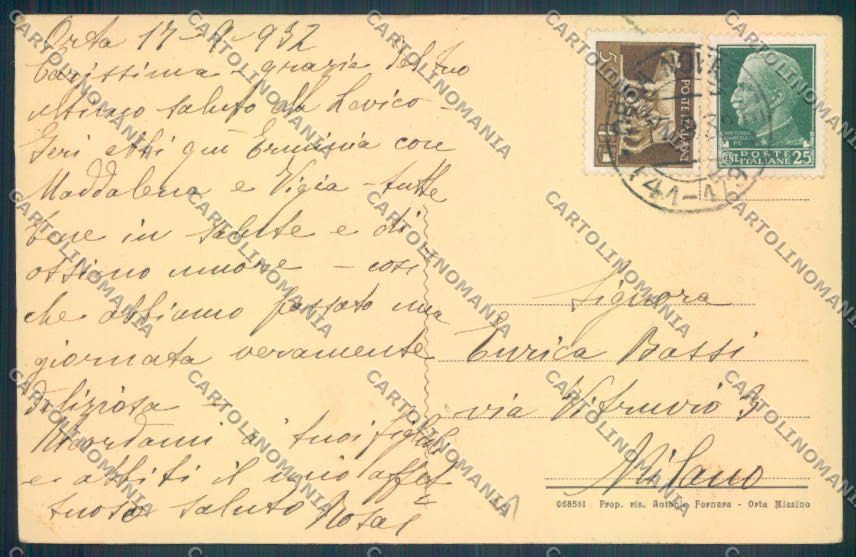 Orta 17-9-932
Carissima - grazie del tuo
ultimo saluto da Levico -
Ieri ebbi qui Erminia con
Maddalena e Vigia - tutte
bene in salute e di
ottimo umore - così
che abbiamo passato una
giornata veramente
deliziosa -
Ricordami a' tuoi figli
e abbiti il mio affet
tuoso saluto Rosa
Signora
Enrica Bassi
via Vitruvio 3
Milano
068581 Prop. ris. Antonio Fornara - Orta Miasino
5
POSTE ITALIANE
POSTE
ITALIANE
CENT. 25
(41-479)
CARTOLINOMANIA